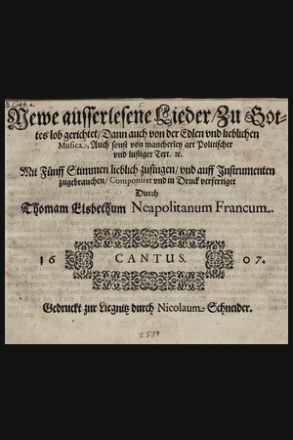 Newe ausserlesene Lieder/ Zu Got-
tes lob gerichtet/ Dann auch von der Edlen vnd lieblichen
Musica, Auch sonst von mancherley art Politischer
vnd lustiger Text. ꝛc.
Mit Fünff Stimmen lieblich zusingen/ vnd auff Instrumenten
zugebrauchen/ Componiret vnd in Druck verfertiget
Durch
Thomam Elsbethum Neapolitanum Francum.
16 CANTUS. 07.
Gedruckt zur Liegnitz durch Nicolaum Schneider.